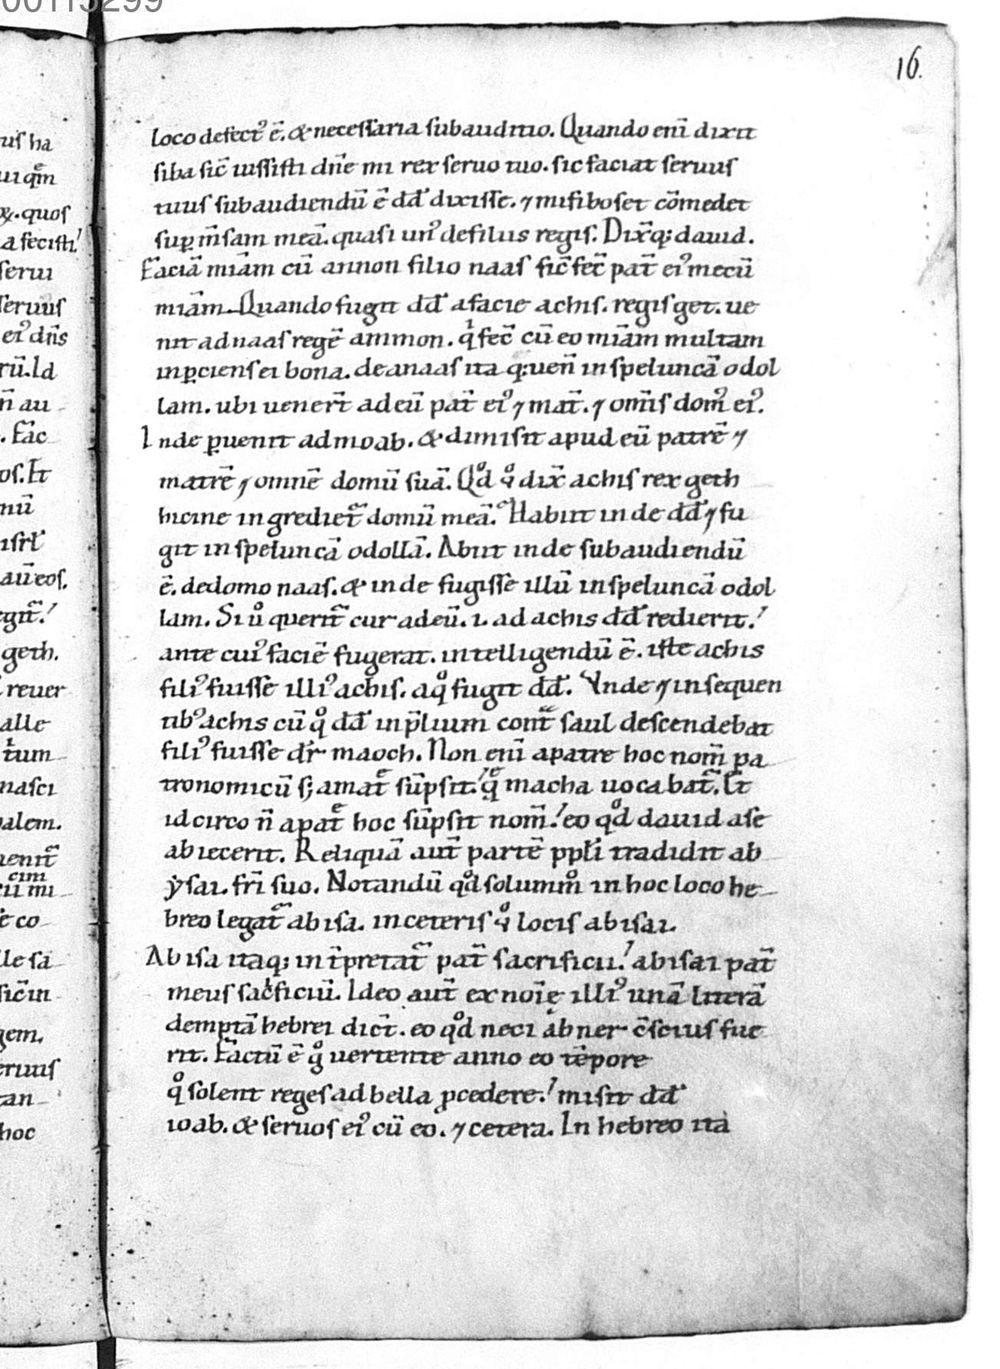 16.
loco defect᷒ ē. & necessaria subauditio. Quando eni̅ dixit
siba sic̅ iussisti dn̅e mi rex seruo tuo. sic faciat seruus
tuus subaudiendū ē dd̅ dixisse. ⁊ misiboset cōmedet
suꝑ m̅sam meā. quasi un᷒ defiliis regis. Dix̅q; dauid.
Faciā mi̅am cū annon filio naas sic̅ fec̅ pat̅ ei᷒ mecū
mi̅am. Quando fugit dd̅ afacie achis. regis get. ue
nit ad naas regē ammon. qͥ fec̅ cū eo mi̅am multam
inꝑciens ei bona. deanaas ita q: uen̅ in speluncā odol
lam. ubi uenert̅ ad eū pat̅ ei᷒ ⁊ mat̅. ⁊ om̅is dom᷒ ei᷒.
Inde ꝑuenit ad moab. & dimisit apud eū patrē ⁊
matrē ⁊ omnē domū suā. Qͦd ṽ dix̅ achis rex geth
hicine ingrediet̅ domū meā. Habiit inde dd̅ ⁊ fu
git in speluncā odollā. Abiit inde subaudiendū
ē. dedomo naas. & inde fugisse illū in speluncā odol
lam. Si uͦ querit̅ cur ad eū. i. ad achis dd̅ redierit.
ante cui᷒ faciē fugerat. intelligendū ē. iste achis
fili᷒ fuisse illi᷒ achis. a qͦ fugit dd̅. Vnde ⁊ insequen
tib᷒ achis cū qͦ dd̅ in p̅lium cont̅ saul descendebat
fili᷒ fuisse dr̅ maoch. Non eni̅ apatre hoc nom̅ pa
tronomicū s; amat̅ sūpsit. q̅ macha uocabat̅. Et
idcirco n̅ apat̅ hoc sūpsit nom̅. eo qͦd dauid a se
abiecerit. Reliquā aut̅ partē ppl̅i tradidit ab
ẏsai. fr̅i suo. Notandū qͦd solummͦ in hoc loco he
breo legat̅ abisa. in ceteris ṽ locis abisai.
Abisa itaq; int̅pretat̅ pat̅ sacrificii. abisai pat̅
meus sac̅ficiū. Ideo aut̅ ex noi̅e illi᷒ unā litterā
demptā hebrei dict̅. eo qͦd neci abner c̅scius fue
rit. Factū ē gͦ uertente anno eo tēpore
qͦ solent reges ad bella ꝓcedere. misit dd̅
ioab. & seruos ei᷒ cū eo. ⁊ cetera. In hebreo ita